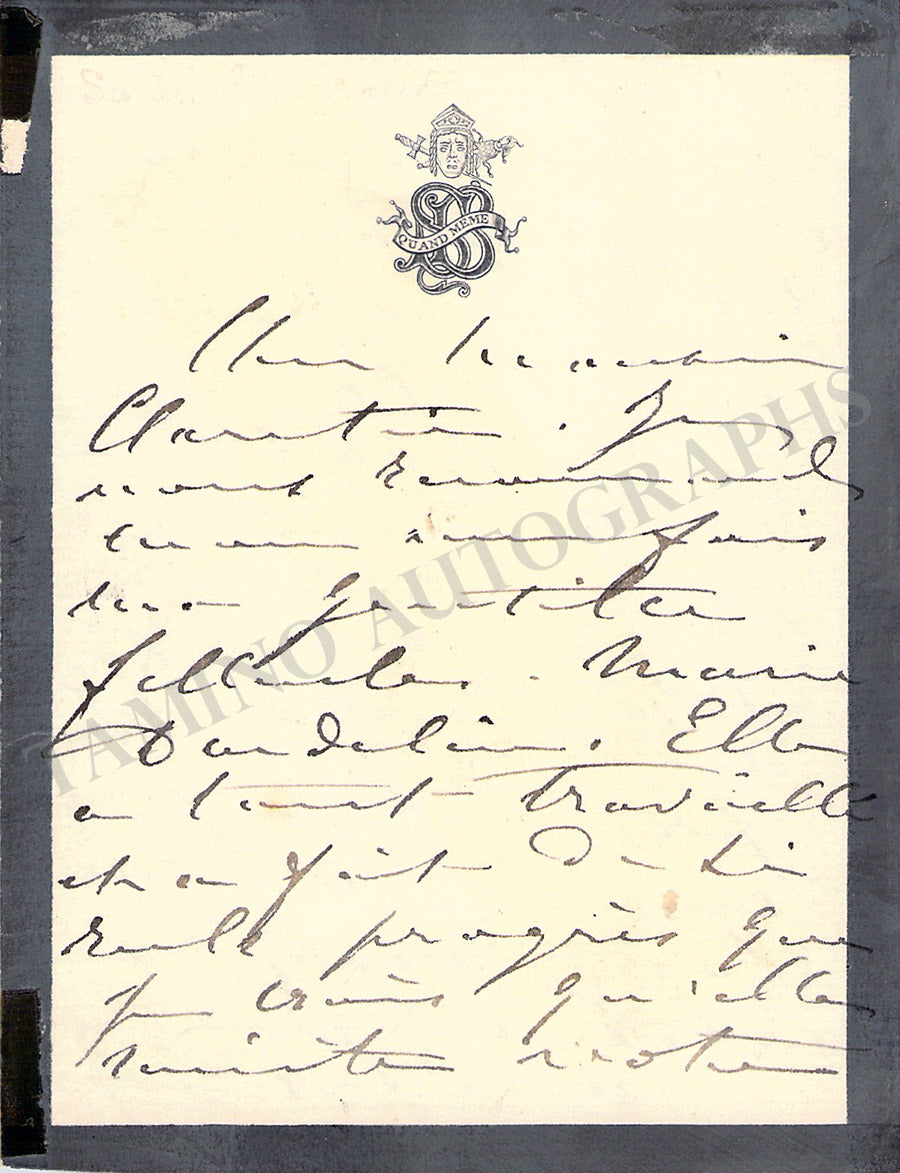 QUAND MEME
SB
Cher Monsieur
Claretie. Je
vous recommande
encore une fois
ma gentille
filleule. Marie
Dandelin. Elle
a tant travaillé
et a fait de si
réels progrès que
je crois qu'elle
mérite votre
TAMINO AUTOGRAPHS